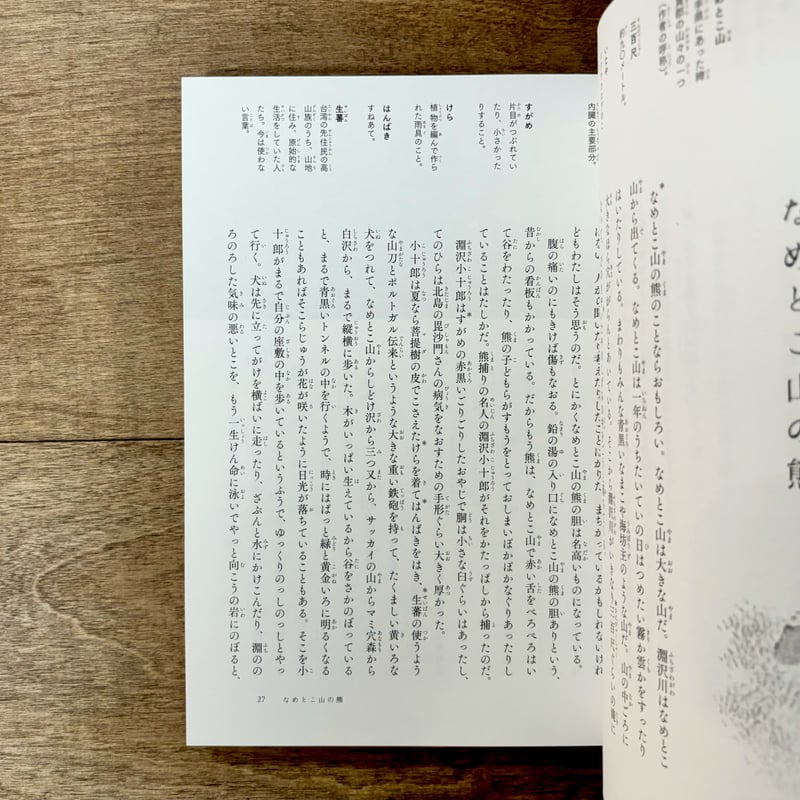 なめとこ山の熊
めとこ山
三百尺
約九〇メートル。
*なめとこ山の熊のことならおもしろい。なめとこ山は大きな山だ。淵沢川はなめとこ
山から出てくる。なめとこ山は一年のうちたいていの日はつめたい霧か雲かをすったり
はいたりしている。まわりもみんな青黒いなまこや海坊主のような山だ。山の中ごろに
内臓の主要部分。
すがめ
片目がつぶれてい
たり、小さかった
りすること。
けら
植物を編んで作ら
れた雨具のこと。
はんばき
すねあて。
生蕃
台湾の先住民の高
山族のうち、山地
に住み、原始的な
生活をしていた人
たち。今は使わな
い言葉。
どもわたしはそう思うのだ。とにかくなめとこ山の熊の胆は名高いものになっている。
腹の痛いのにもきけば傷もなおる。鉛の湯の入り口になめとこ山の熊の胆ありという、
昔からの看板もかかっている。だからもう熊は、なめとこ山で赤い舌をべろべろはい
て谷をわたったり、熊の子どもらがすもうをとっておしまいぽかぽかなぐりあったりし
ていることはたしかだ。熊捕りの名人の淵沢小十郎がそれをかたっぱしから捕ったのだ。
淵沢小十郎はすがめの赤黒いごりごりしたおやじで胴は小さな臼ぐらいはあったし、
てのひらは北島の毘沙門さんの病気をなおすための手形ぐらい大きく厚かった。
小十郎は夏なら菩提樹の皮でこさえたけらを着てはんばきをはき、生蕃の使うよう
な山刀とポルトガル伝来というような大きな重い鉄砲を持って、たくましい黄いろな
犬をつれて、なめとこ山からしどけ沢から三つ又から、サッカイの山からマミ穴森から
白沢から、まるで縦横に歩いた。木がいっぱい生えているから谷をさかのぼっている
と、まるで青黒いトンネルの中を行くようで、時にはぱっと緑と黄金いろに明るくなる
こともあればそこらじゅうが花が咲いたように日光が落ちていることもある。そこを小
十郎がまるで自分の座敷の中を歩いているというふうで、ゆっくりのっしのっしとやっ
て行く。犬は先に立ってがけを横ばいに走ったり、ざぶんと水にかけこんだり、淵のの
ろのろした気味の悪いとこを、もう一生けん命に泳いでやっと向こうの岩にのぼると、
27 なめとこ山の熊